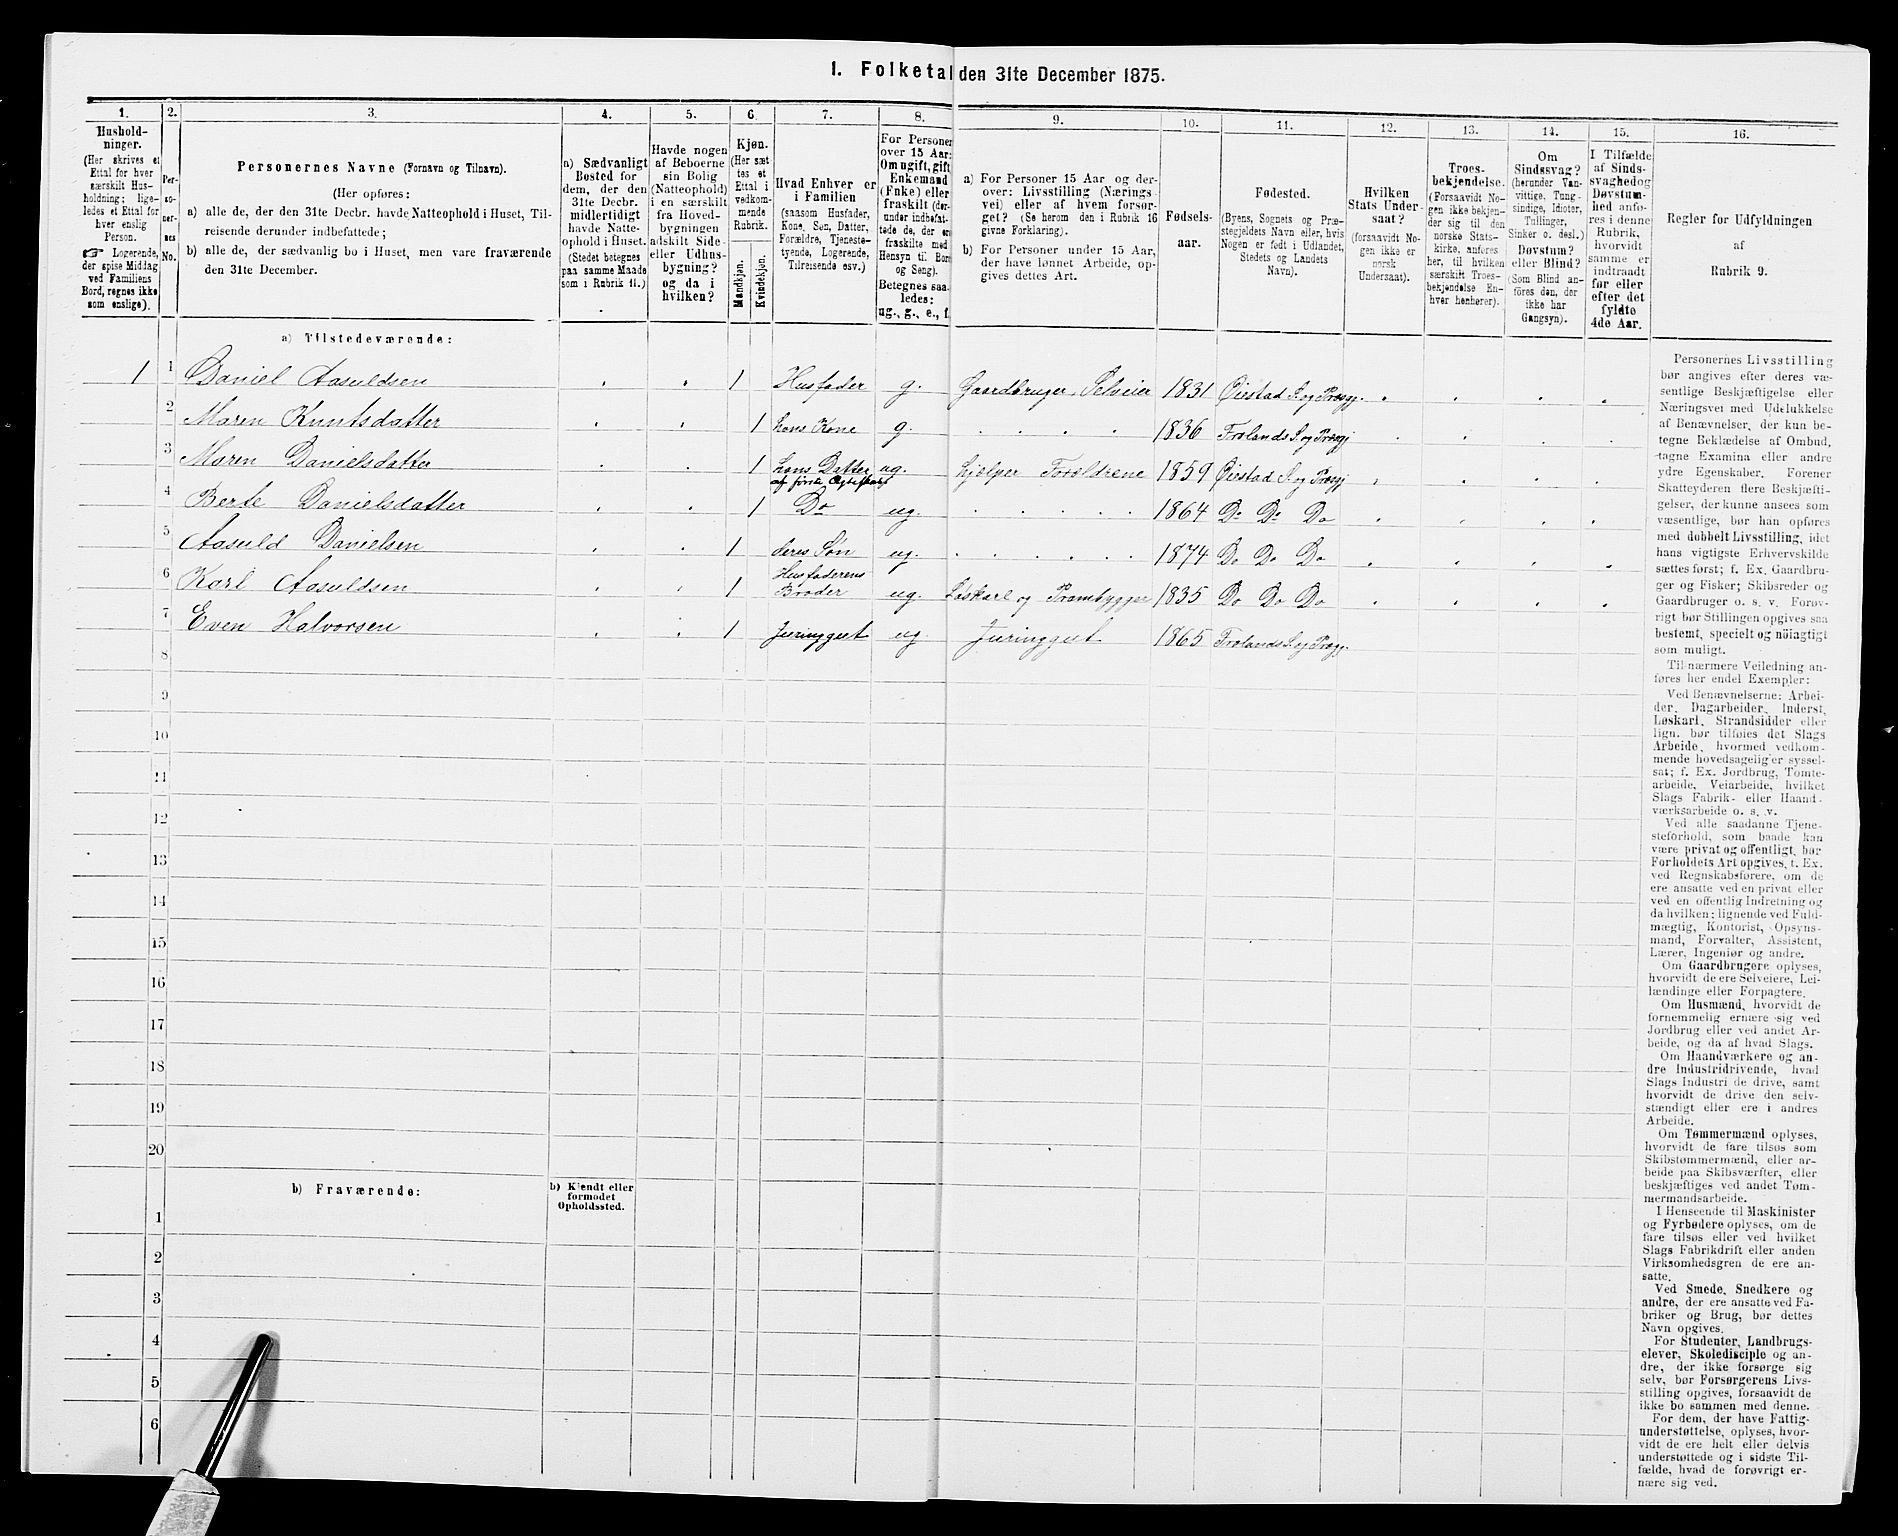 1. Folketal den 31te December 1875.
1.
Hushold-
ninger.
(Her skrives et
Ettal for hver
særskilt Hus-
holdning; lige-
ledes et Ettal for
hver enslig
Person.
☞ Logerende,
der spise Middag
ved Familiens
Bord, regnes ikke
som enslige).
2.
Per-
so-
ner-
nes
No.
3.
Personernes Navne (Fornavn og Tilnavn).
(Her opføres:
a) alle de, der den 31te Decbr. havde Natteophold i Huset, Til-
reisende derunder indbefattede;
b) alle de, der sædvanlig bo i Huset, men vare fraværende
den 31te December.
4.
a) Sædvanligt
Bosted for
dem, der den
31te Decbr.
midlertidigt
havde Natte-
ophold i Huset.
(Stedet betegnes
paa samme Maade
som i Rubrik 11.)
5.
Havde nogen
af Beboerne
sin Bolig
(Natteophold)
i en særskilt
fra Hoved-
bygningen
adskilt Side-
eller Udhus-
bygning?
og da i
hvilken?
6.
Kjøn.
(Her sæt
tes et
Ettal i
vedkom-
mende
Rubrik.
Mandkjøn.
Kvindekjøn.
7.
Hvad Enhver er
i Familien
(saasom Husfader,
Kone, Søn, Datter,
Forældre, Tjeneste-
tyende, Logerende,
Tilreisende osv.)
8.
For Personer
over 15 Aar:
Om ugift, gift,
Enkemand
(Enke) eller
fraskilt (der-
under indbefat-
tede de, der ere
fraskilte med
Hensyn til Bord
og Seng).
Betegnes saa-
ledes:
ug., g., e., f.
9.
a) For Personer 15 Aar og der-
over: Livsstilling (Nærings-
vei) eller af hvem forsør-
get? (Se herom den i Rubrik 16
givne Forklaring).
b) For Personer under 15 Aar,
der have lønnet Arbeide, op-
gives dettes Art.
10.
Fødsels-
aar.
11.
Fødested.
(Byens, Sognets og Præ-
stegjeldets Navn eller, hvis
Nogen er født i Udlandet,
Stedets og Landets
Navn).
12.
Hvilken
Stats Under-
saat?
(forsaavidt No-
gen ikke er
norsk
Undersaat).
13.
Troes-
bekjendelse.
(Forsaavidt No-
gen ikke bekjen-
der sig til den
norske Stats-
kirke, anføres
her, til hvilken
særskilt Troes-
bekjendelse En-
hver henhører).
14.
Om
Sindssvag?
(herunder Van-
vittige, Tung-
sindige, Idioter,
Tullinger,
Sinker o. desl.)
Døvstum?
eller Blind?
(Som Blind an-
føres den, der
ikke har
Gangsyn).
15.
I Tilfælde
af Sinds-
svaghed og
Døvstum-
hed anfø-
res i denne
Rubrik,
hvorvidt
samme er
indtraadt
før eller
efter det
fyldte
4de Aar.
16.
Regler for Udfyldningen
af
Rubrik 9.
a) Tilstedeværende:
1 1 Daniel Aasuldsen 1 Husfader g. Gaardbruger, Selveier 1831 Øiestad S. og Præsgj.
2 Maren Knutsdatter 1 hans Kone g. 1836 Frolands S. og Præsgj
3 Maren Danielsdatter 1 hans Datter af første Ægteskab ug. hjelper Forældrene 1859 Øiestad S. og Præsgj
4 Berte Danielsdatter 1 Do ug. 1864 Do Do Do
5 Aasuld Danielsen 1 deres Søn ug. 1874 Do Do Do
6 Karl Aasuldsen 1 Husfaderens Broder ug. Løskarl og Prambygger 1835 Do Do Do
7 Even Halvorsen 1 ug. 1865 Frolands S. og Præsgj.
8
9
10
11
12
13
14
15
16
17
18
19
20
b) Fraværende:
b) Kjendt eller
formodet
Opholdssted.
1
2
3
4
5
6
Personernes Livsstilling
bør angives efter deres væ-
sentlige Beskjæftigelse eller
Næringsvei med Udelukkelse
af Benævnelser, der kun be-
tegne Beklædelse af Ombud,
tagne Examina eller andre
ydre Egenskaber. Forener
Skatteyderen flere Beskjæfti-
gelser, der kunne ansees som
væsentlige, bør han opføres
med dobbelt Livsstilling, idet
hans vigtigste Erhvervskilde
sættes først; f. Ex. Gaardbru-
ger og Fisker; Skibsreder og
Gaardbruger o. s. v. Forøv-
rigt bør Stillingen opgives saa
bestemt, specielt og nöiagtigt
som muligt.
Til nærmere Veiledning an-
føres her endel Exempler:
Ved Benævnelserne: Arbei-
der, Dagarbeider, Inderst,
Løskarl, Strandsidder eller
lign. bør tilføies det Slags
Arbeide, hvormed vedkom-
mende hovedsagelig er syssel-
sat; f. Ex. Jordbrug, Tomte-
arbeide, Veiarbeide, hvilket
Slags Fabrik- eller Haand-
værksarbeide o. s. v.
Ved alle saadanne Tjene-
steforhold, som baade kan
være privat og offentligt, bør
Forholdets Art opgives, t. Ex.
ved Regnskabsførere, om de
ere ansatte ved en privat eller
ved en offentlig Indretning og
da hvilken; lignende ved Fuld-
mægtig, Kontorist, Opsyns-
mand, Forvalter, Assistent,
Lærer, Ingeniør og andre.
Om Gaardbrugere oplyses,
hvorvidt de ere Selveiere, Lei-
lændinge eller Forpagtere.
Om Husmænd, hvorvidt de
fornemmelig ernære sig ved
Jordbrug eller ved andet Ar-
beide, og da af hvad Slags.
Om Haandværkere og an-
dre Industridrivende, hvad
Slags Industri de drive, samt
hvorvidt de drive den selv-
stændigt eller ere i andres
Arbeide.
Om Tømmermænd oplyses,
hvorvidt de fare tilsøs som
Skibstømmermænd, eller ar-
beide paa Skibsværfter, eller
beskjæftiges ved andet Tøm-
mermandsarbeide.
I Henseende til Maskinister
og Fyrbødere oplyses, om de
fare tilsøs eller ved hvilket
Slags Fabrikdrift eller anden
Virksomhedsgren de ere an-
satte.
Ved Smede, Snedkere og
andre, der ere ansatte ved Fa-
briker og Brug, bør dettes
Navn opgives.
For Studenter, Landbrugs-
elever, Skoledisciple og an-
dre, der ikke forsørge sig
selv, bør Forsørgerens Livs-
stilling opgives, forsaavidt de
ikke bo sammen med denne.
For dem, der have Fattig-
understøttelse, oplyses, hvor-
vidt de ere helt eller delvis
understøttede og i sidste Til-
fælde, hvad de forøvrigt er-
nære sig ved.